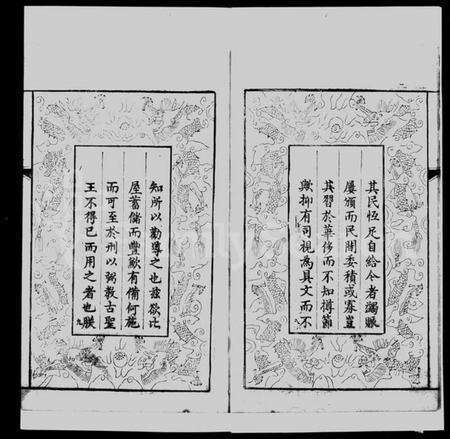 其民恆足自給今者蠲賑
屢頒而民間委積或寡豈
其習於華侈而不知撙節
歟抑有司視為具文而不
知所以勸導之也茲欲比
屋蓄儲而豐歉有備何施
而可至於刑以弼教古聖
王不得已而用之者也朕